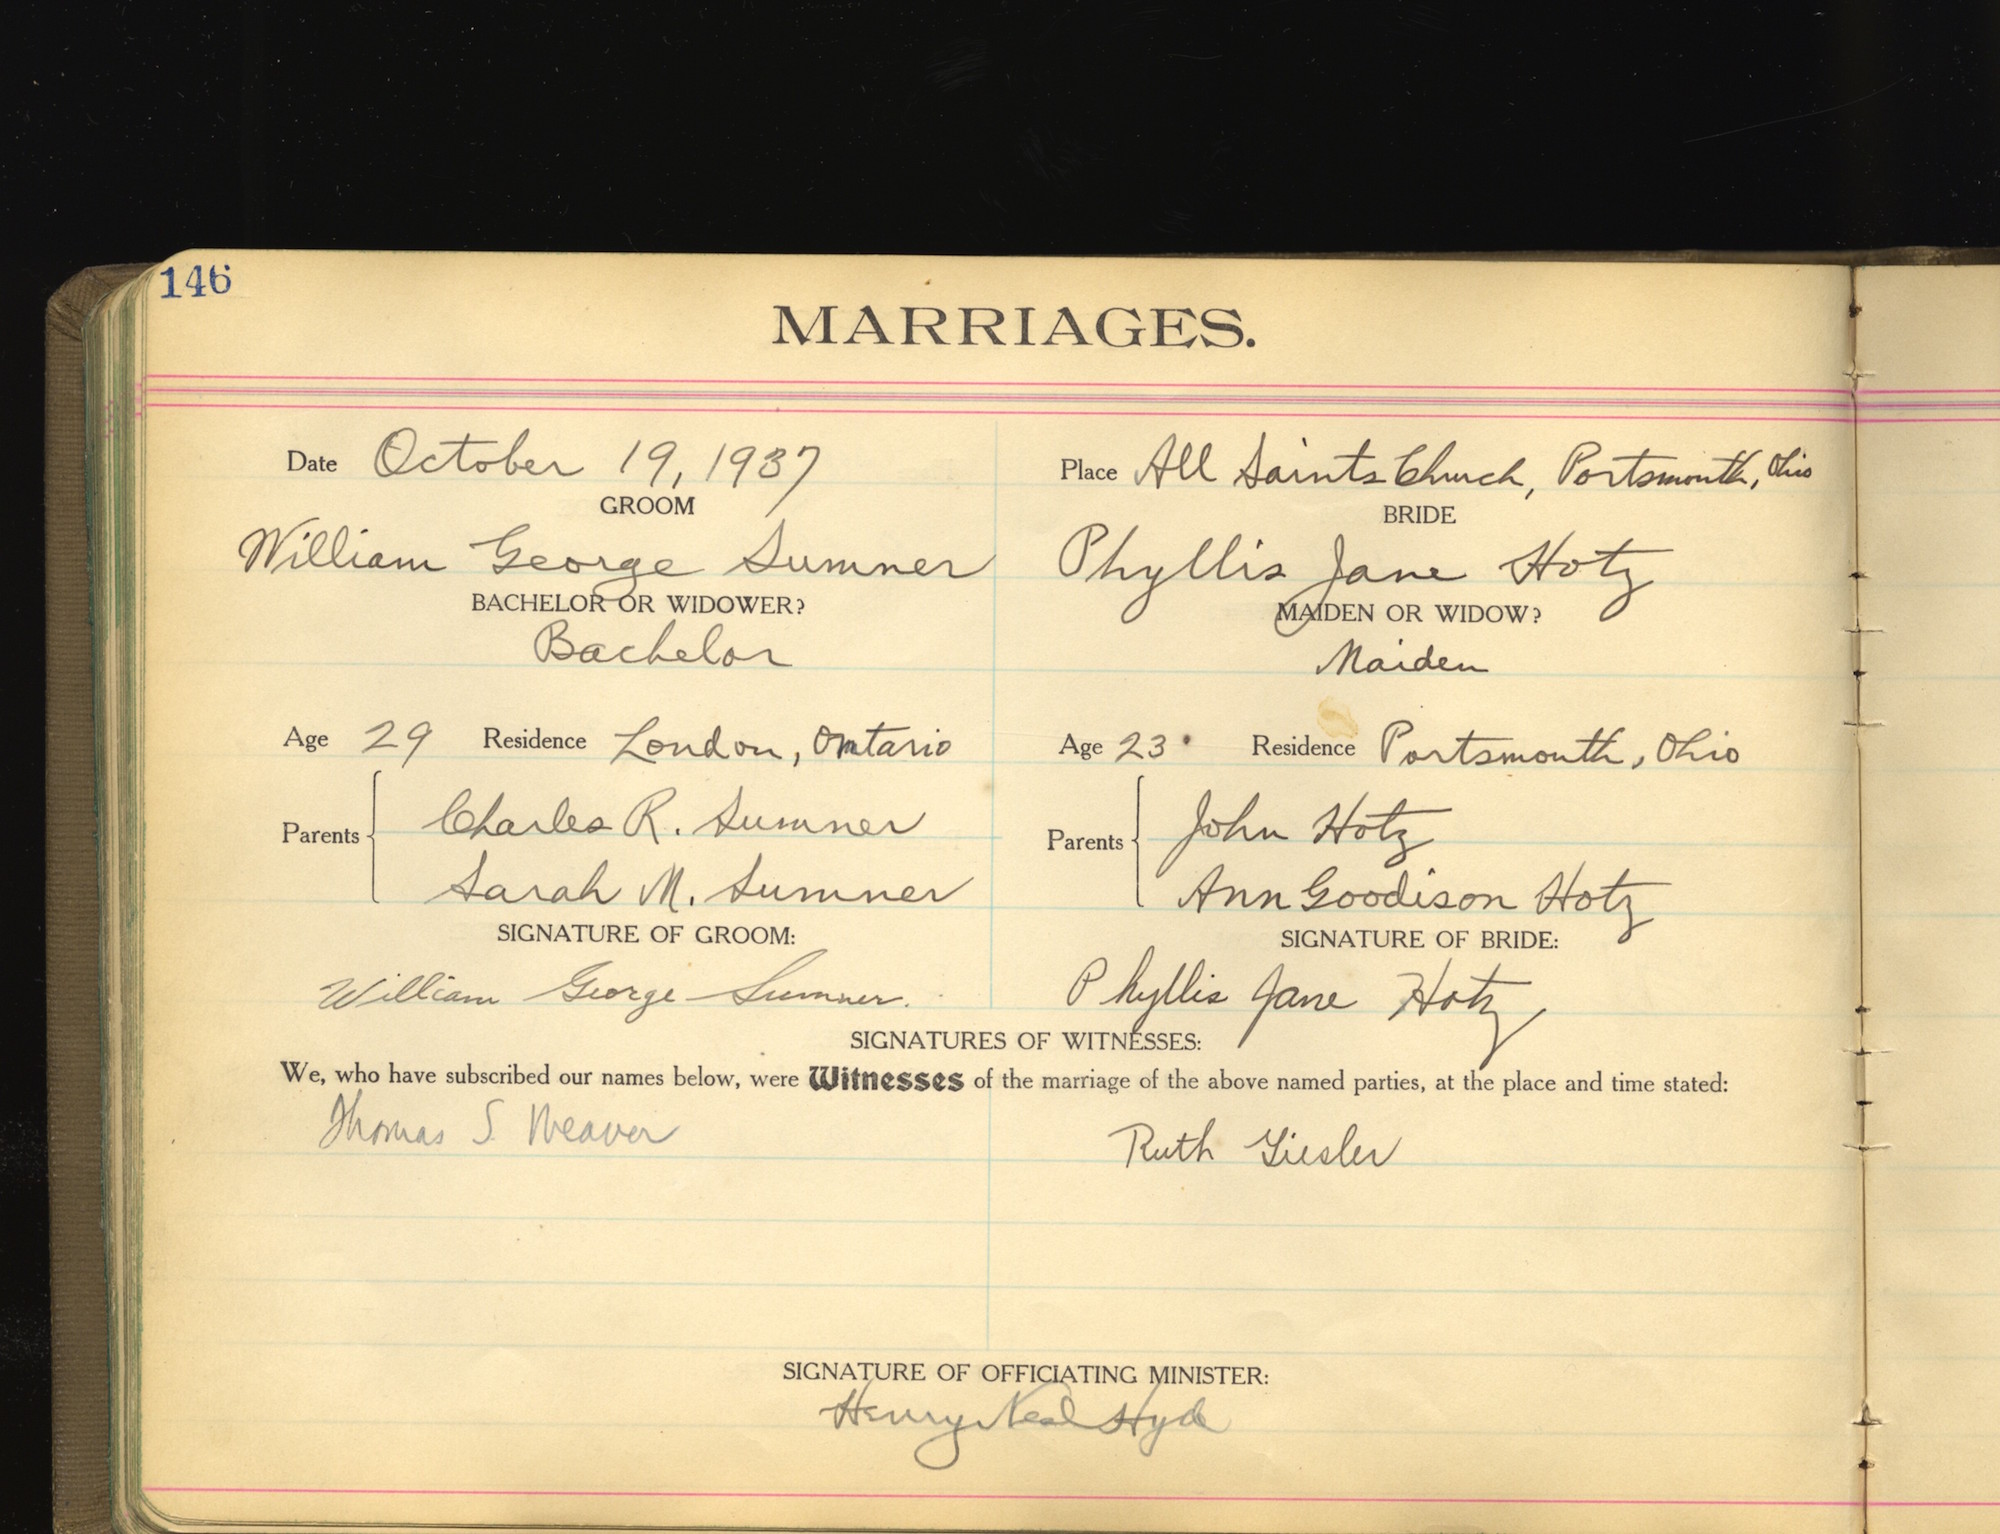 146
MARRIAGES.
Date October 19, 1937
Place All Saints Church, Portsmouth, Ohio
GROOM
BRIDE
William George Sumner
Phyllis Jane Hotz
BACHELOR OR WIDOWER?
MAIDEN OR WIDOW?
Bachelor
Maiden
Age 29 Residence London, Ontario
Age 23 Residence Portsmouth, Ohio
Parents
Charles R. Sumner
Sarah M. Sumner
Parents
John Hotz
Ann Goodison Hotz
SIGNATURE OF GROOM:
SIGNATURE OF BRIDE:
William George Sumner.
Phyllis Jane Hotz
SIGNATURES OF WITNESSES:
We, who have subscribed our names below, were Witnesses of the marriage of the above named parties, at the place and time stated:
Thomas S. Weaver
Ruth Giesler
SIGNATURE OF OFFICIATING MINISTER:
Henry Neal Hyde